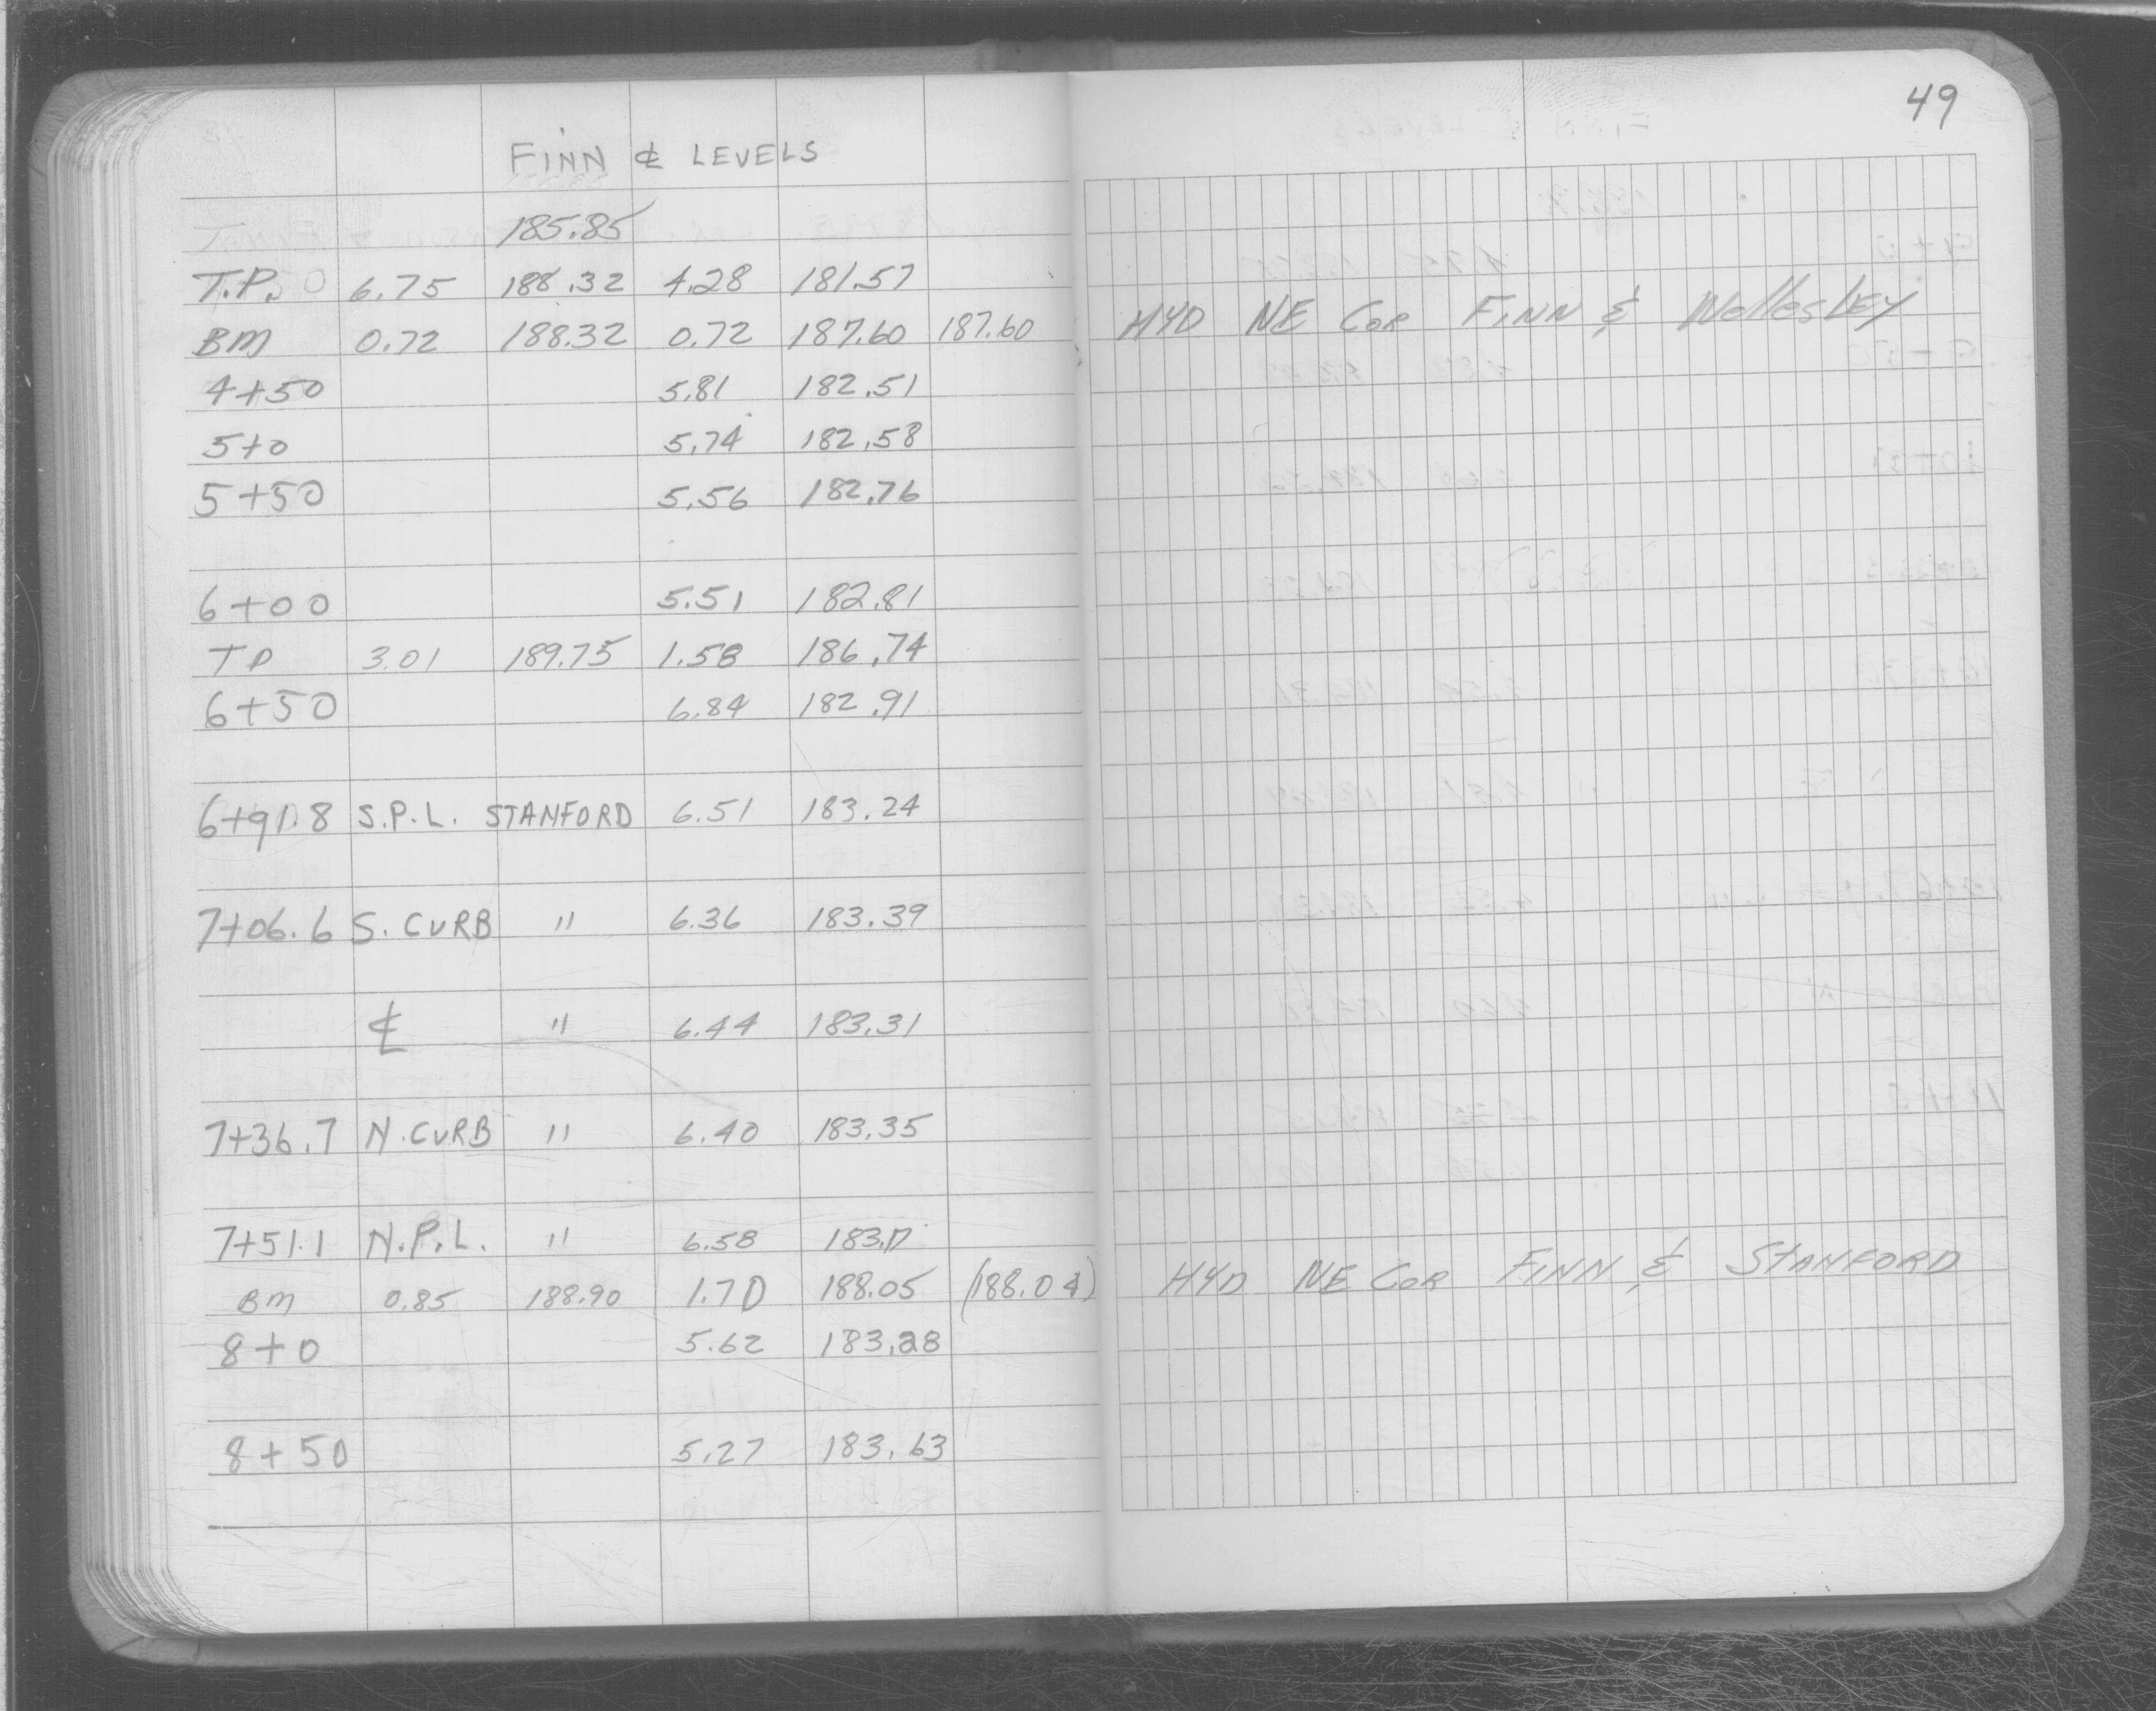 49
FINN ℄ LEVELS
185.85
T.P. 6.75 188.32 4.28 181.57
BM 0.72 188.32 0.72 187.60 187.60 HYD NE COR FINN & WellesLEY
4+50 5.81 182.51
5+0 5.74 182.58
5+50 5.56 182.76
6+00 5.51 182.81
TP 3.01 189.75 1.58 186.74
6+50 6.84 182.91
6+91.8 S.P.L. STANFORD 6.51 183.24
7+06.6 S. CURB " 6.36 183.39
℄ " 6.44 183.31
7+36.7 N. CURB " 6.40 183.35
7+51.1 N.P.L. " 6.58 183.17
BM 0.85 188.90 1.70 188.05 (188.04) HYD NE COR FINN & STANFORD
8+0 5.62 183.28
8+50 5.27 183.63